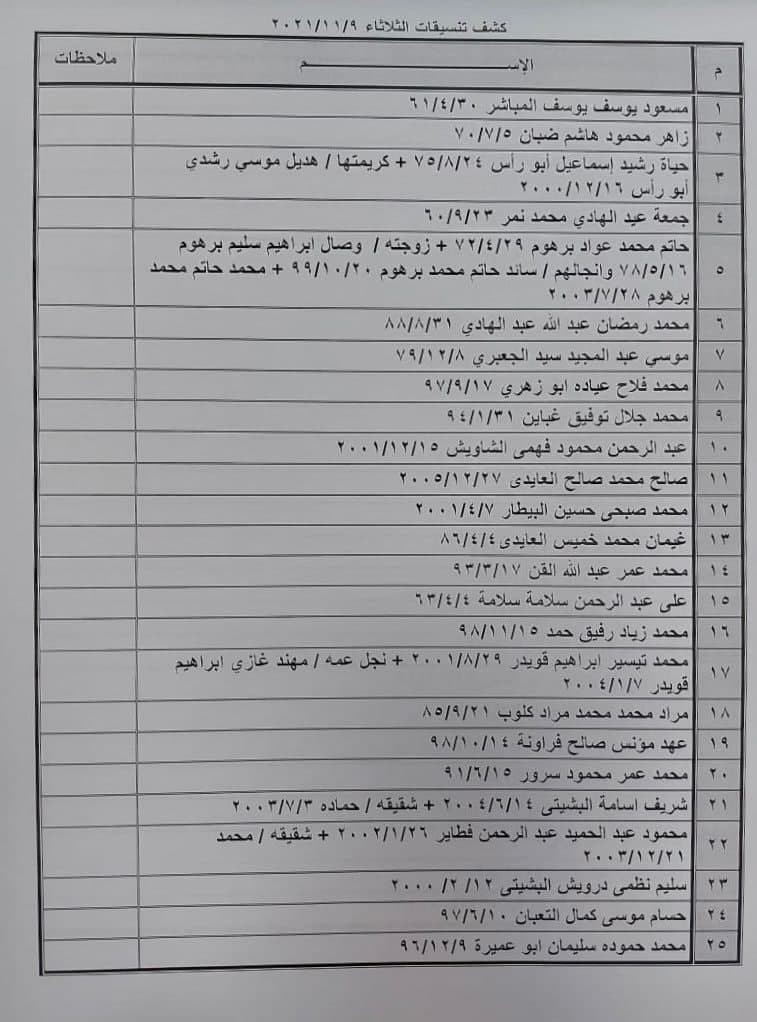 كشف تنسيقات الثلاثاء ٢٠٢١/١١/٩
م الإســـــم ملاحظات
١ مسعود يوسف يوسف المباشر ٦١/٤/٣٠
٢ زاهر محمود هاشم ضبان ٧٠/٧/٥
٣ حياة رشيد إسماعيل أبو رأس ٧٥/٨/٢٤ + كريمتها / هديل موسي رشدي
أبو رأس ٢٠٠٠/١٢/١٦
٤ جمعة عيد الهادي محمد نمر ٦٠/٩/٢٣
٥ حاتم محمد عواد برهوم ٧٢/٤/٢٩ + زوجته / وصال ابراهيم سليم برهوم
٧٨/٥/١٦ وانجالهم / سائد حاتم محمد برهوم ٩٩/١٠/٢٠ + محمد حاتم محمد
برهوم ٢٠٠٣/٧/٢٨
٦ محمد رمضان عبد الله عبد الهادي ٨٨/٨/٣١
٧ موسي عبد المجيد سيد الجعبري ٧٩/١٢/٨
٨ محمد فلاح عياده ابو زهري ٩٧/٩/١٧
٩ محمد جلال توفيق غباين ٩٤/١/٣١
١٠ عبد الرحمن محمود فهمى الشاويش ٢٠٠١/١٢/١٥
١١ صالح محمد صالح العايدى ٢٠٠٥/١٢/٢٧
١٢ محمد صبحى حسين البيطار ٢٠٠١/٤/٧
١٣ غيمان محمد خميس العايدى ٨٦/٤/٤
١٤ محمد عمر عبد الله القن ٩٣/٣/١٧
١٥ على عبد الرحمن سلامة سلامة ٦٣/٤/٤
١٦ محمد زياد رفيق حمد ٩٨/١١/١٥
١٧ محمد تيسير ابراهيم قويدر ٢٠٠١/٨/٢٩ + نجل عمه / مهند غازي ابراهيم
قويدر ٢٠٠٤/١/٧
١٨ مراد محمد محمد مراد كلوب ٨٥/٩/٢١
١٩ عهد مؤنس صالح فراونة ٩٨/١٠/١٤
٢٠ محمد عمر محمود سرور ٩١/٦/١٥
٢١ شريف اسامة البشيتى ٢٠٠٤/٦/١٤ + شقيقه / حماده ٢٠٠٣/٧/٣
٢٢ محمود عبد الحميد عبد الرحمن فطاير ٢٠٠٢/١/٢٦ + شقيقه / محمد
٢٠٠٣/١٢/٢١
٢٣ سليم نظمى درويش البشيتى ١٢/ ٢/ ٢٠٠٠
٢٤ حسام موسى كمال التعبان ٩٧/٦/١٠
٢٥ محمد حموده سليمان ابو عميرة ٩٦/١٢/٩